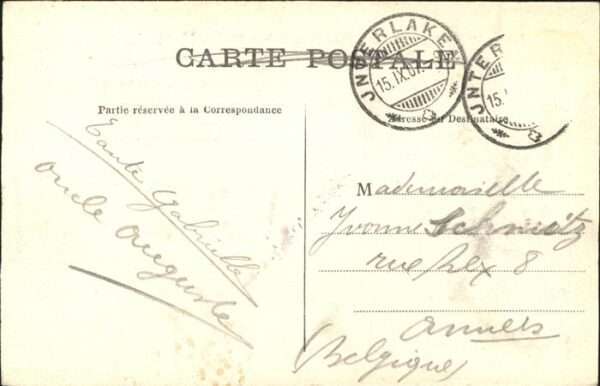 CARTE POSTALE
JNTERLAKEN
15.IX.07.
JNTER
15.
Partie réservée à la Correspondance
Adresse du Destinataire
Tante Gabrielle
oncle Auguste
Mademoiselle
Yvonne Schmitz
rue 8
Anvers
(Belgique)